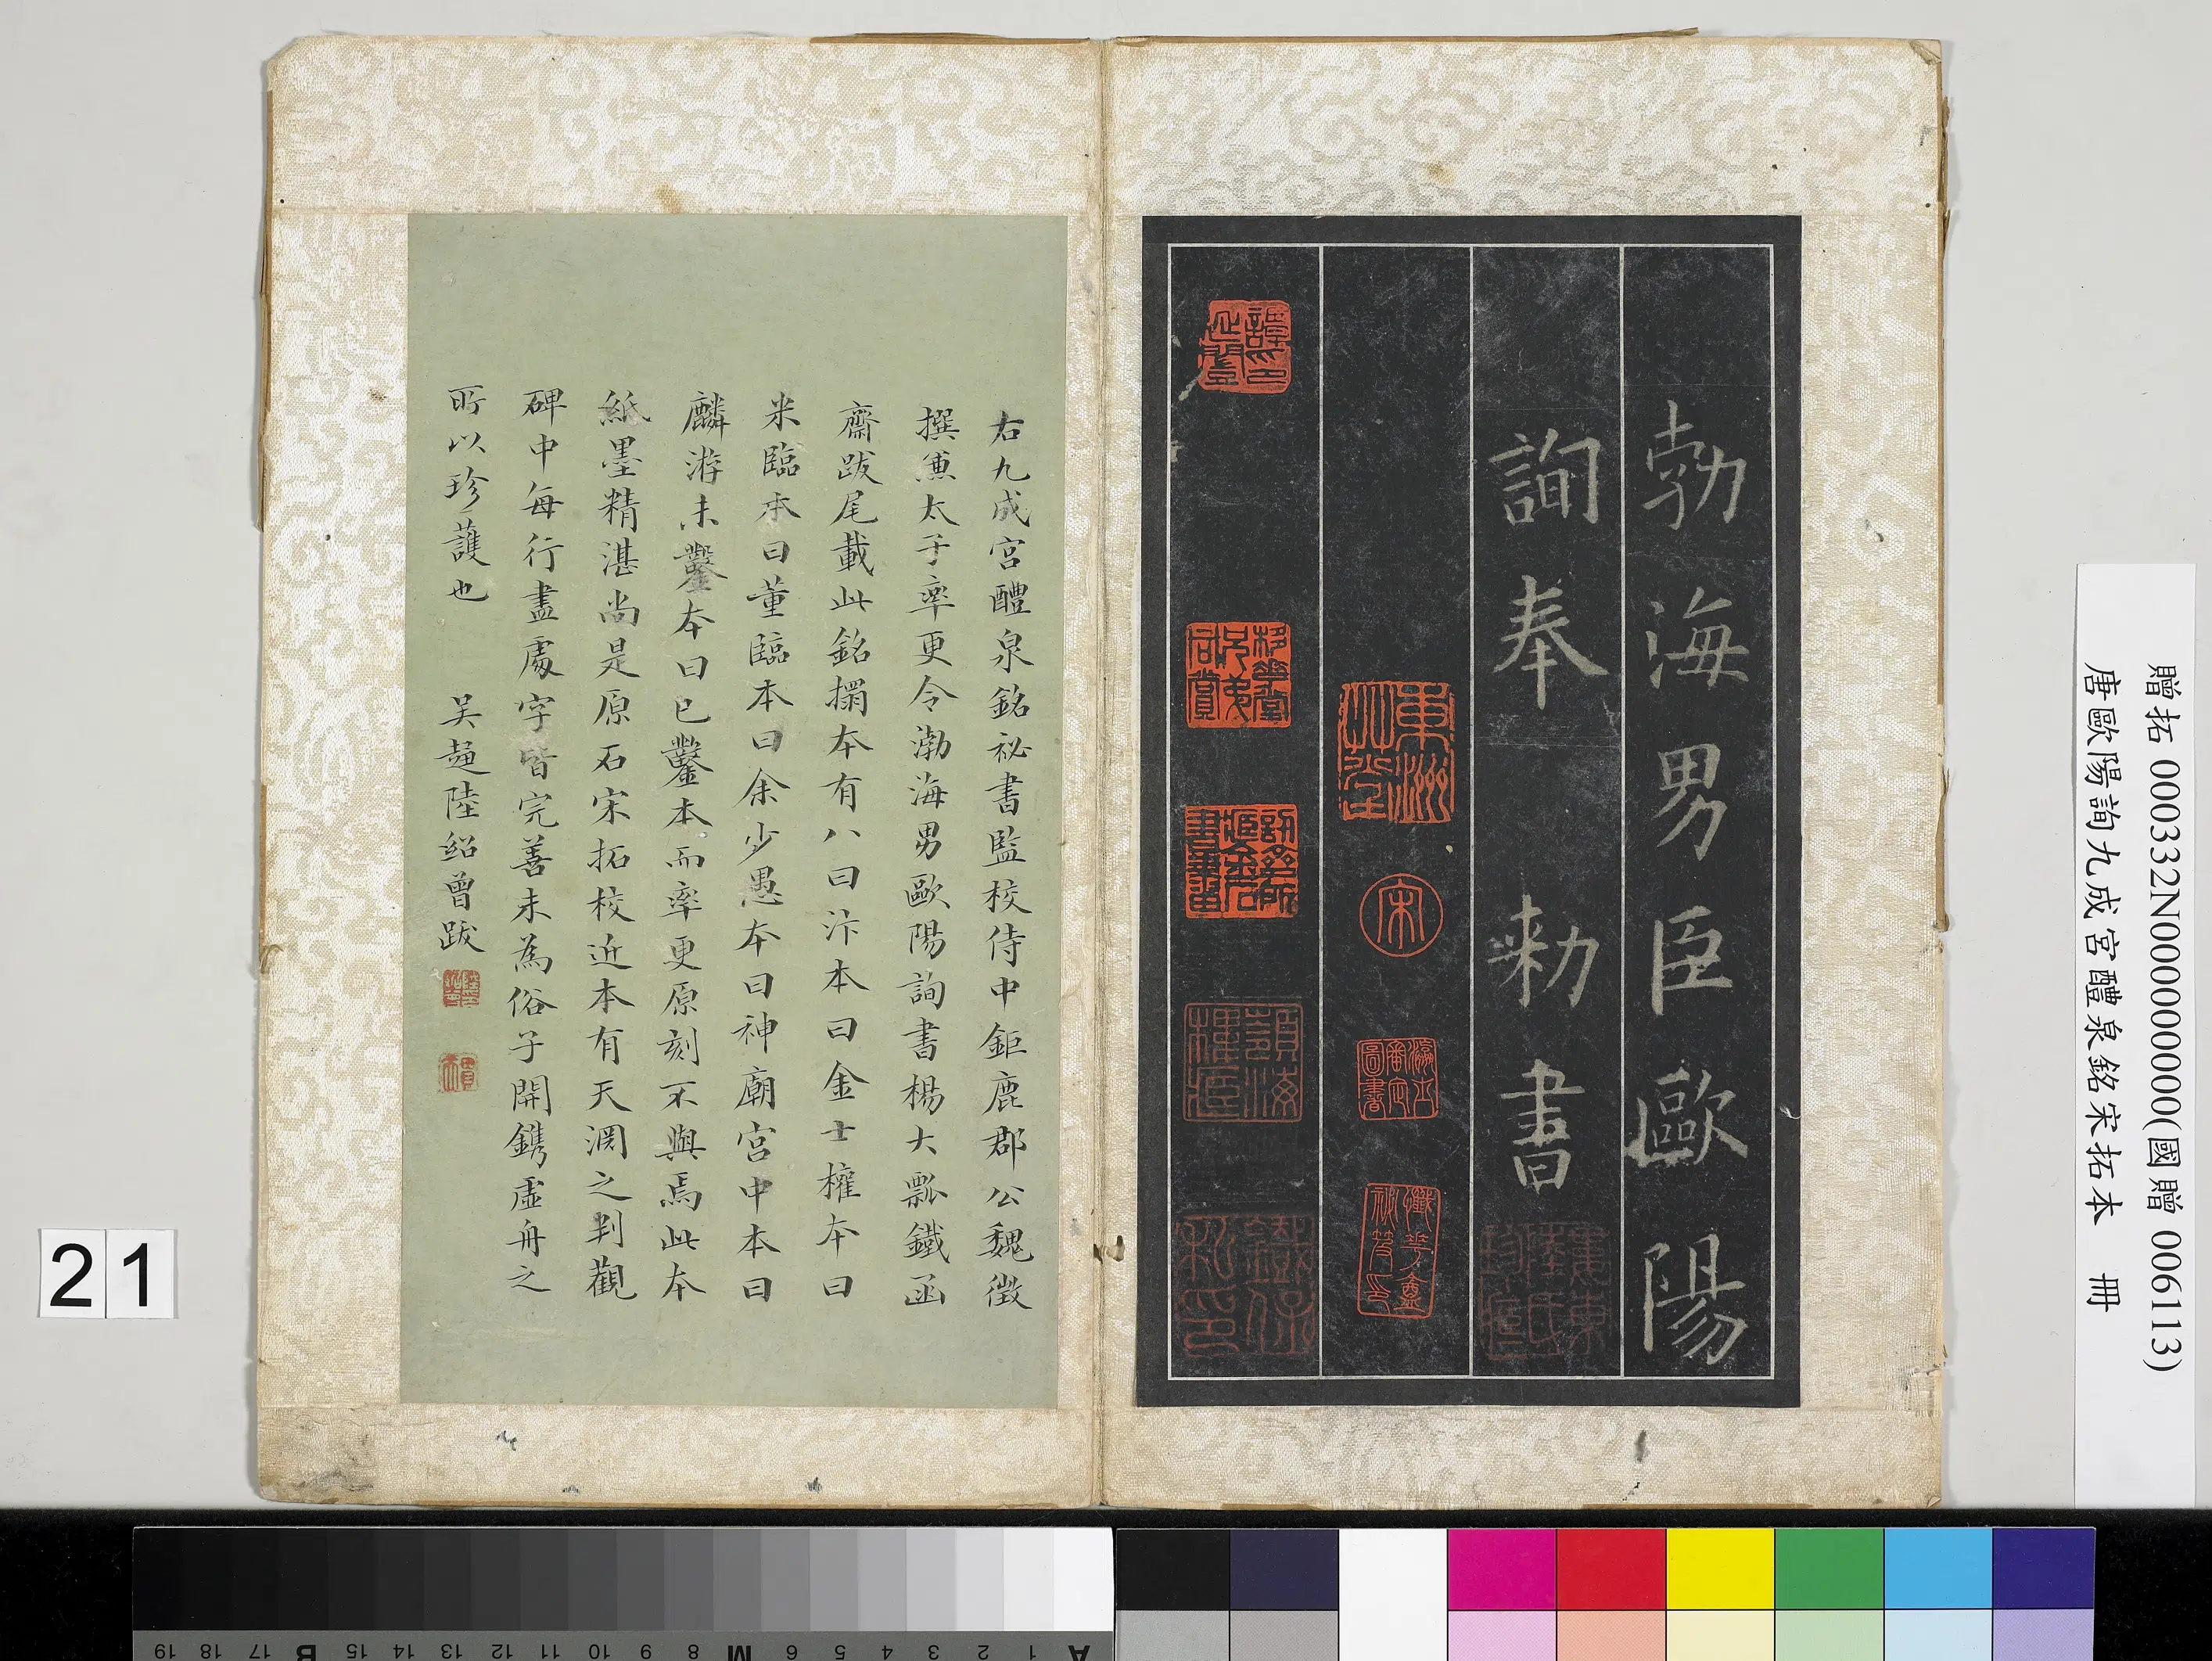 勃海男臣歐陽
詢奉 勅書
宋
右九成宮醴泉銘祕書監校侍中鉅鹿郡公魏徵
撰兼太子率更令渤海男歐陽詢書楊大瓢鐵函
齋跋尾載此銘搨本有八曰汴本曰金士權本曰
米臨本曰董臨本曰余少愚本曰神廟宮中本曰
麟游未鑿本曰已鑿本而率更原刻不與焉此本
紙墨精湛尚是原石宋拓校近本有天淵之判觀
碑中每行盡處字皆完善未為俗子開鐫虛舟之
所以珍護也 吴趨陸紹曾跋
贈拓 000332N000000000(國贈 006113)
唐歐陽詢九成宮醴泉銘宋拓本 冊
21
A 1 2 3 4 5 6 M 8 9 10 11 12 13 14 15 B 17 18 19